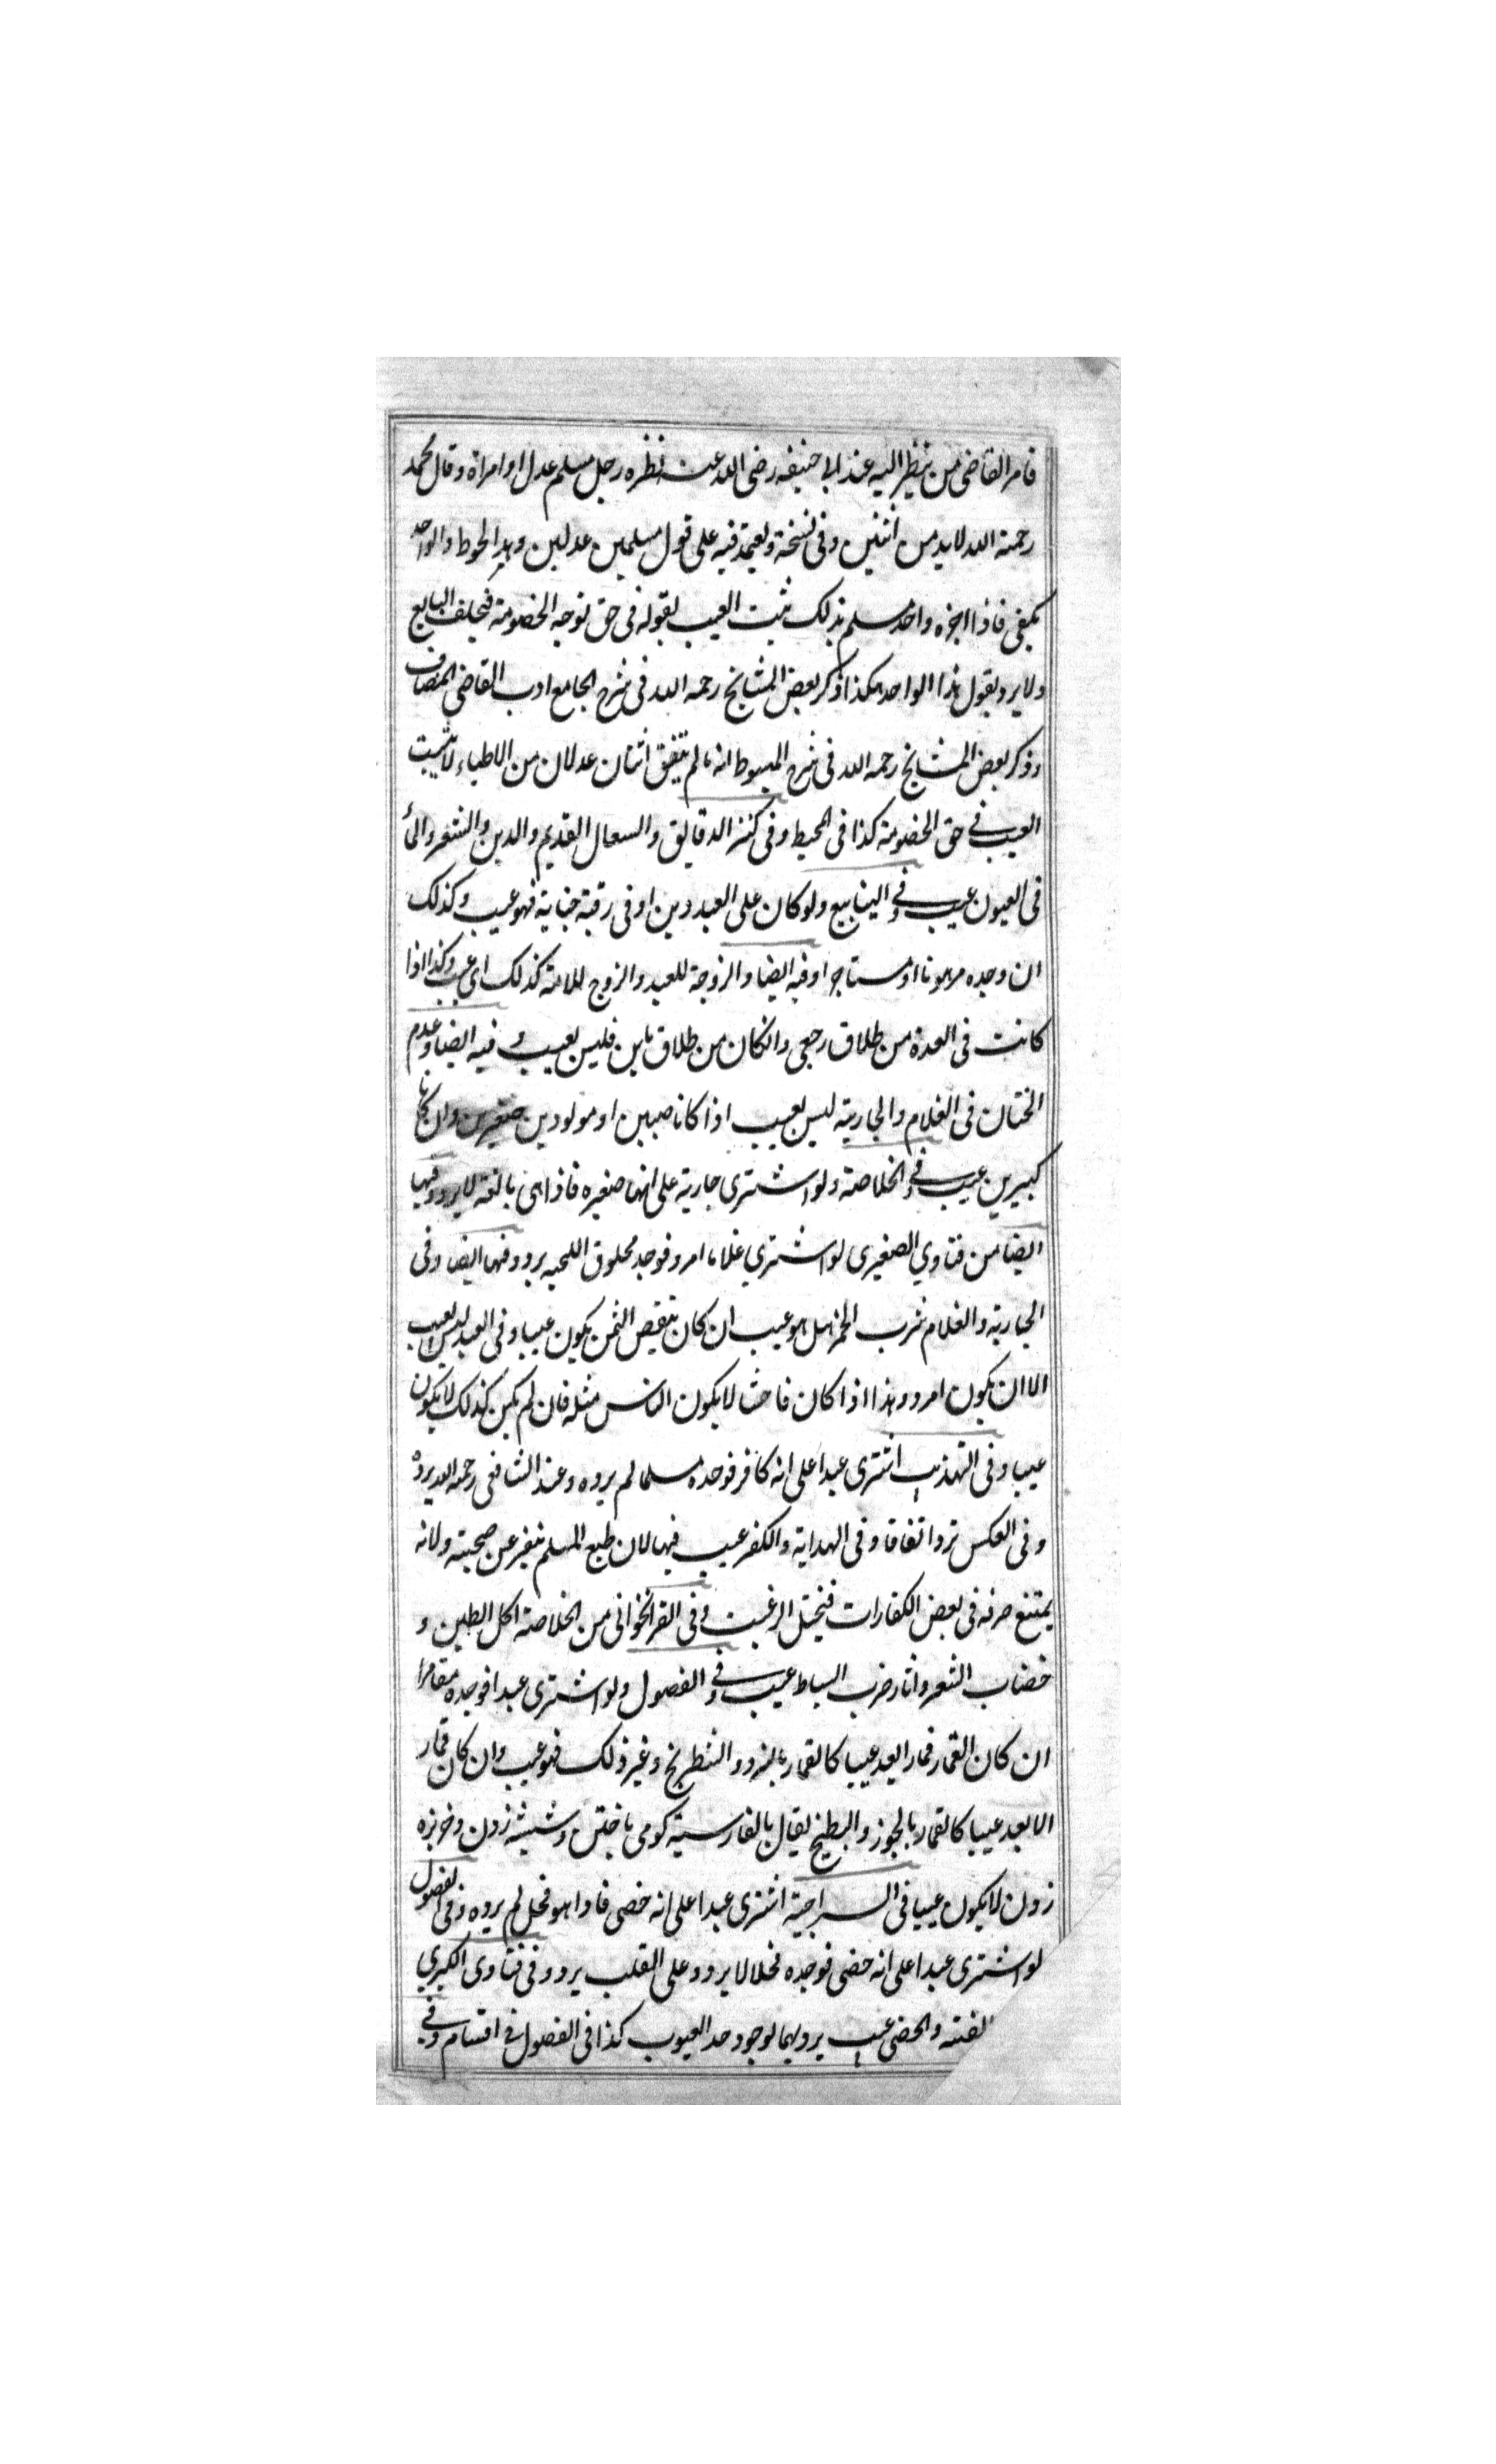 فامر القاضى من ينظر اليه عند ابى حنيفه رضى الله عنه نظره رجل مسلم عدل او امراة وقال محمد
رحمة الله لابد من اثنين وفى نسخة ويعتمد فيه على قول مسلمين عدلين وهذا احوط والواحد
يكفى فاذا اخبره واحد مسلم بذلك يثبت العيب بقوله فى حق توجه الخصومة فيحلف البايع
ولا يرد بقول هذا الواحد هكذا ذكر بعض المشايخ رحمه الله فى شرح الجامع ادب القاضى الخصاف
وذكر بعض المشايخ رحمه الله فى شرح المبسوط انه مالم يتفق اثنان عدلان من الاطباء لا يثبت
العيب فى حق الخصومة كذا فى المحيط وفى كنز الدقايق والسعال القديم والدين والشعر والمأ
فى العيون عيب وفى الينابيع ولو كان على العبد دين او فى رقبة جناية فهو عيب وكذلك
ان وجده مرهونا او مستاجرا وفيه ايضا والزوجة للعبد والزوج للامة كذلك اى عيب وكذا اذا
كانت فى العدة من طلاق رجعى وانكان من طلاق باين فليس بعيب و فيه ايضا وعدم
الختان فى الغلام والجارية ليس بعيب اذا كانا صبيين او مولودين صغيرين وان كانا
كبيرين عيب وفى الخلاصة ولو اشترى جارية على انها صغيره فاذا هى بالغة لا يرد وفيها
ايضا من فتاوي الصغيرى لو اشتري غلاما امرد فوجد محلوق اللحيه يرد وفيها ايضا وفى
الجارية والغلام شرب الخمر هل هو عيب ان كان ينقص الثمن يكون عيبا وفى العبد ليس بعيب
الا ان يكون امرد وهذا اذا كان فاحشا لا يكون الناس مثله فان لم يكن كذلك لا يكون
عيبا وفى التهذيب اشترى عبدا على انه كافر فوجده مسلما لم يرده وعند الشافعى رحمه الله يرده
وفى العكس ترد اتفاقا وفى الهداية والكفر عيب فيها لان طبع المسلم ينفر عن صحبته ولانه
يمتنع صرفه فى بعض الكفارات فيختل الرغبت وفى القراخوانى من الخلاصة اكل الطين و
خضاب الشعر واثار ضرب السياط عيب وفى الفصول ولو اشترى عبدا فوجده مقامرا
ان كان القمار قمار ايعد عيبا كالقمار بالنرد والشطرنج وغير ذلك فهو عيب وان كان قمار
الا يعد عيبا كالقمار بالجوز والبطيخ يقال بالفارسية كومى باختن وشيشه زدن وخربزه
زدن لا يكون عيبا فى السراجية اشترى عبدا على انه خصى فاذا هو فحل لم يرده وفى الفصول
لو اشترى عبدا على انه خصى فوجده فحلا لا يرد وعلى القلب يرد وفى فتاوى الكبرى
الفسه والخصى عيب يرد بهما لوجود حد العيوب كذا فى الفصول فى اقسام وفى